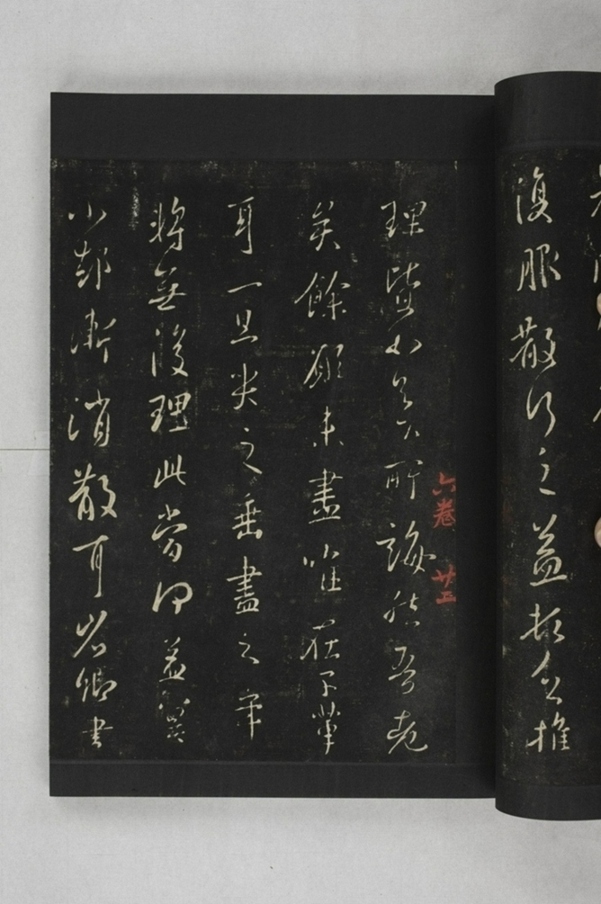 復服散行之益頓乏推
理皆如足下所誨然吾老
矣餘願未盡唯在子輩
耳一旦哭之垂盡之年
將無復理此當何益冀
小却漸消散耳省卿書
六卷 廿五